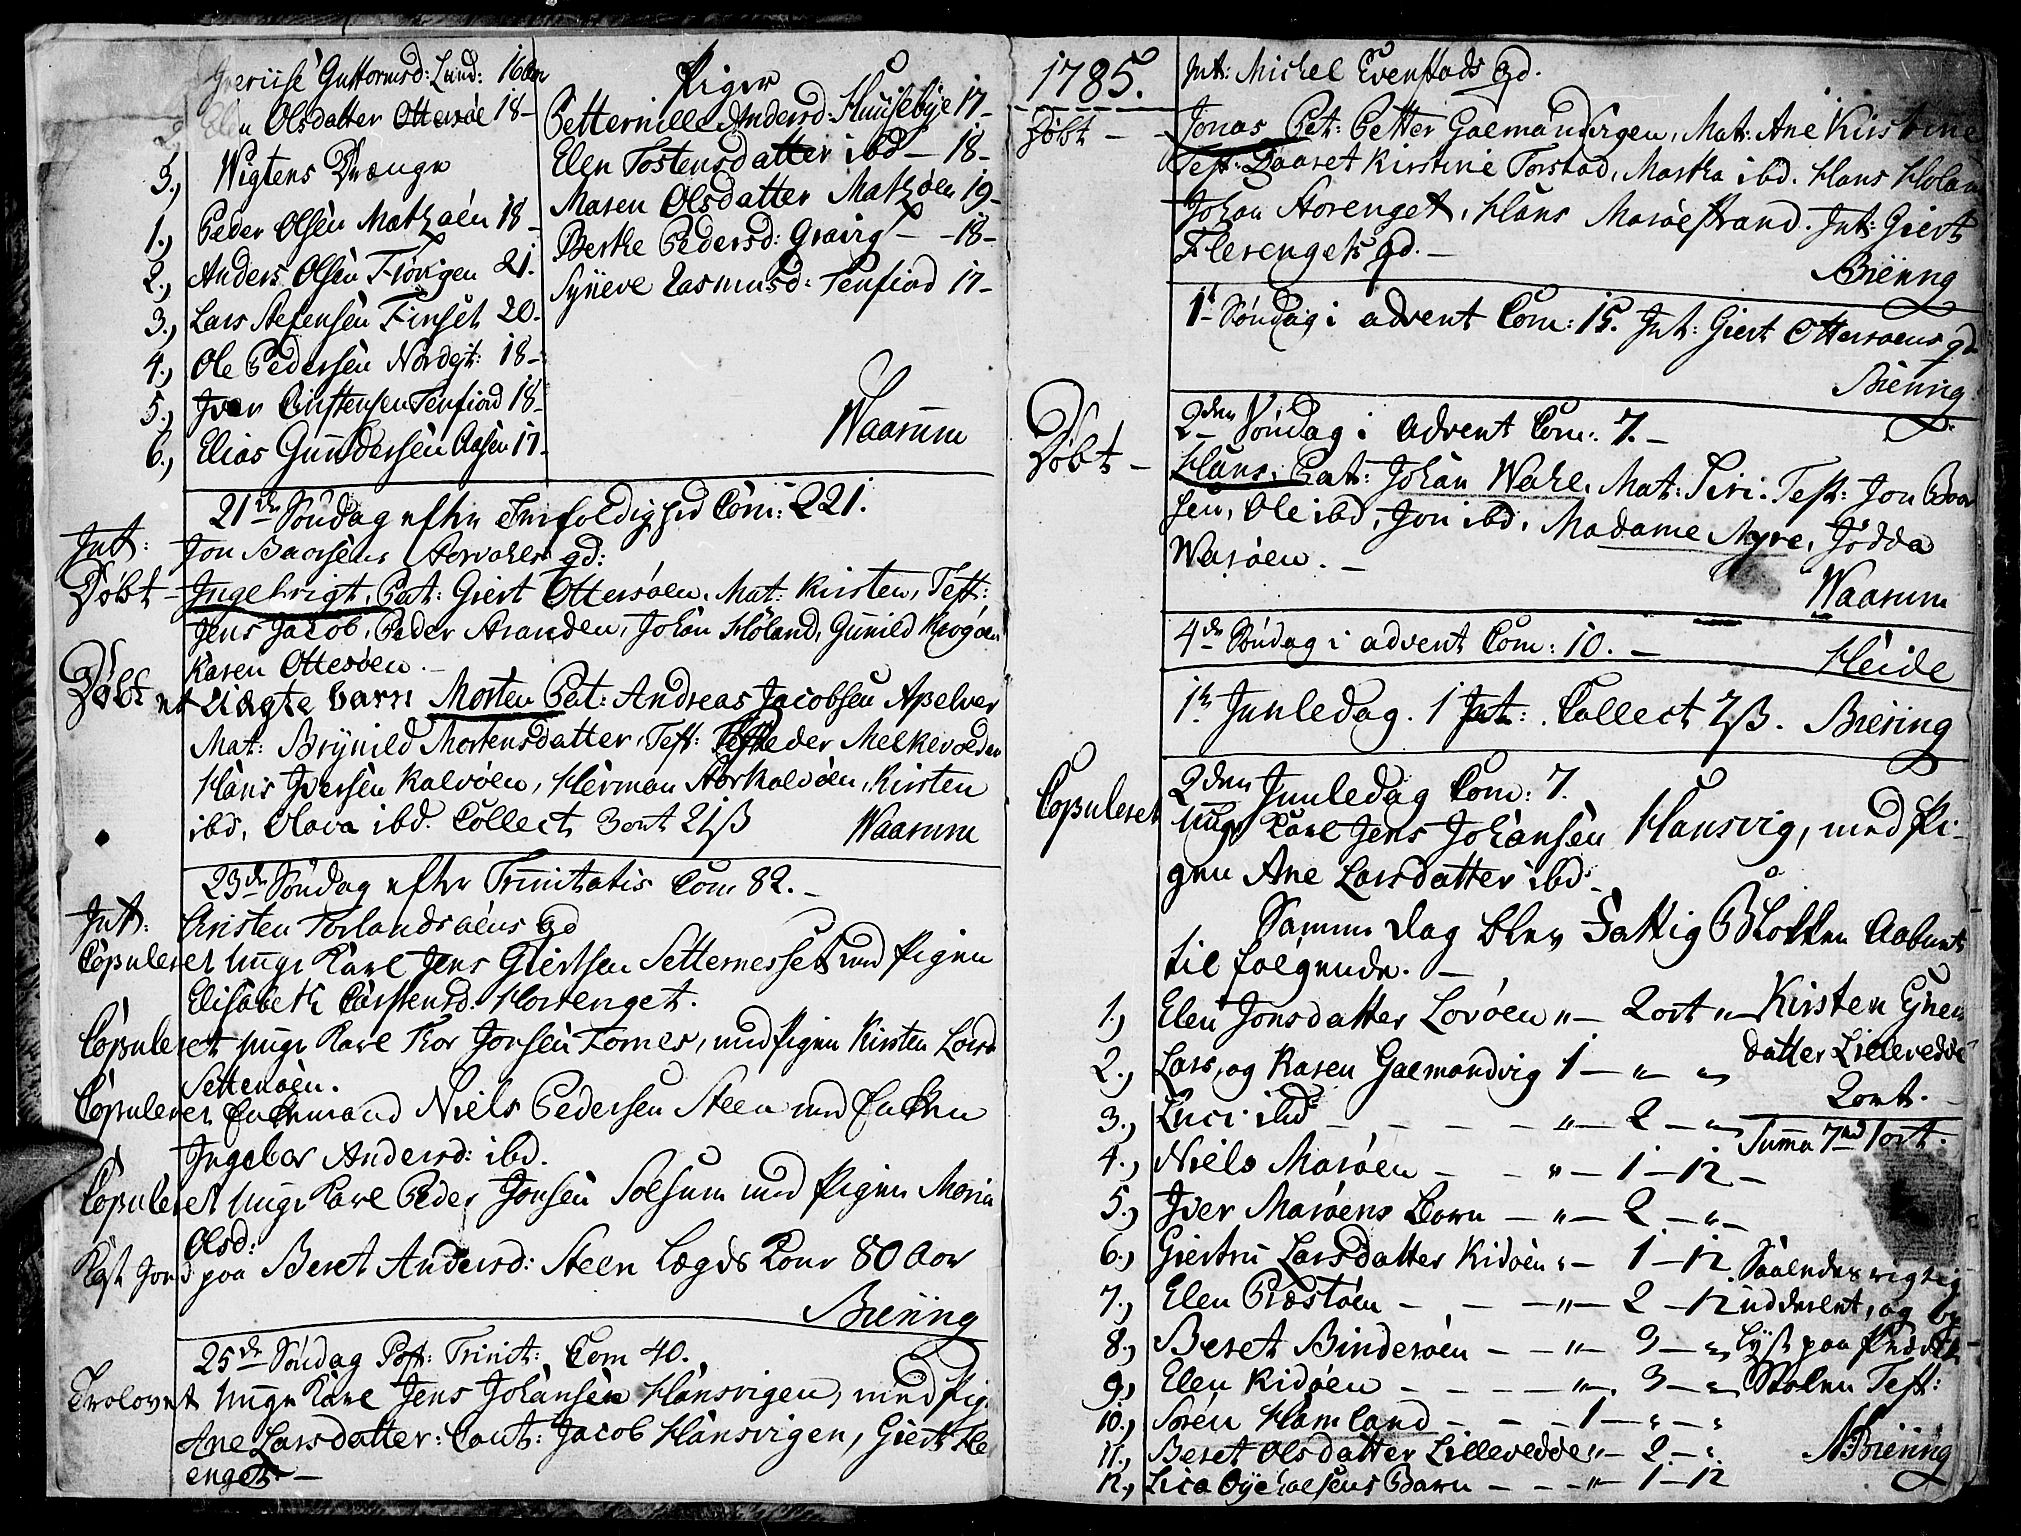 Guttormsd: Lund: 16
2, Elen Olsdatter Ottersøe 18-
3., Wigtens Drænge
1., Peder Olsen Mathøen 18-
2., Anders Olsen Flørigen 21.
3., Lars Stefensen Finset 20.
4., Ole Pedersen Nordgt: 18-
5., Iver Cristensen Tenfiord 18-
6., Elias Gundersen Aasen 17-
Piger
Petternille Andersd: Huusebye 17-
Elen Tostensdatter ibd - 18-
Maren Olsdatter Mathøen 19-
Berthe Pedersd: Graurg - -18-
Syneve Rasmusd: Tenfiord 17-
Waarum
21de Søndag efter Trefoldighed Com: 221.
Int: Jon Baarsens qd:
Døbt - Ingebrigt, Pat: Giert Ottersøen. Mat: Kirsten, Test:
Jens Jacob, Peder Aranden, Johan Høland, Gunild Krogøen
Karen Ottesøen -
Døbt et uægte barn Morten Pat: Andreas Jacobsen Apelvær
Mat: Brynild Mortensdatter, Test: Peder Melkevoeden
Hans Iversen Kalvøen, Herman Storkalvøen, Kirsten
ibd, Olava ibd. Collect 3 ort 21 ß Waarum
23de Søndag efter Trinitatis Com 82. -
Int: Kristen Torlandsøens qd
Copuleret unge Karl Jens Giertsen Setternesset med Pigen
Elisabeth Carstensd: Horsenget.
Copuleret unge Karl Thor Jonsen Fornes, med Pigen Kirsten Larsd
Settenøen.
Copuleret Enkemand Niels Pedersen Steen med Enken
Ingebor Andersd: ibd.
Copuleret unge Karl Peder Jonsen Solsum med Pigen Maria
Olsd:
Kast Jord paa Beret Andersd: Steen Lægds Kone 80 Aar
Biering
25de Søndag Post: Trinit: Com 40.
Trolovet unge Karl Jens Johansen Hansvigen, med Pig.
Ane Larsdatter: Caut: Jacob Hansvigen, Giert Fle
enget. -
1785.
Int: Michel Evenstads qd.
Døbt - - Jonas Pat: Petter Galmandvgen, Mat: Ane Kirstine
Test: Baaret Kirstine Torstad, Martha ibd. Hans Holan
Johan Storenget, Hans Marøestrand. Int: Giert
Flerengets qd. -
Biering
1te Søndag i advent Com: 15. Int: Giert Ottersøens qd
Biering
2den Søndag i Advent Com: 7. -
Døbt - Hans, Pat: Johan Wahl, Mat: Siri. Test: Jon Baar
sen, Ole ibd, Jon ibd, Madame Myre, Jødda
Warøen. -
Waarum
4de Søndag i advent Com: 10. - Heide
1te Juuledag. 1 Int: Collect 7 ß. Biering
2den Juuledag Com: 7.
Copuleret unge Karl Jens Johansen Hansvig, med Pi-
gen Ane Larsdatter ibd:
Samme Dag blev Fattig Blokken Aabnet
til følgende. -
1., Elen Jonsdatter Lovøen " - 2 ort "
2., Lars, og Karen Galmandvig 1 - " "
3., Luci ibd - - - - " - 2 - "
4., Niels Marøen - - " - 1 - 12 -
5., Iver Marøens Barn - " - 2 - " -
6., Giertru Larsdatter Kidøen " - 1 - 12
7., Elen Præstøen - - - " - 2 - 12
8., Beret Bindesøen - - " - 3 - "
9., Elen Kidøen - - - - " - 3 - "
10., Søren Hamland - - - 1 - " - "
11., Beret Olsdatter Lillevedde " - 2 - "
12., Lica Øye Olsens Barn - - - " - 1 - 12
Kirsten Ejnen
datter Lillevedde
2 ort. -
Summa 7rd 1 ort.
Saaledes rigtig
uddeelt, og
lyst paa Prædike
Stolen Test:
NBiering